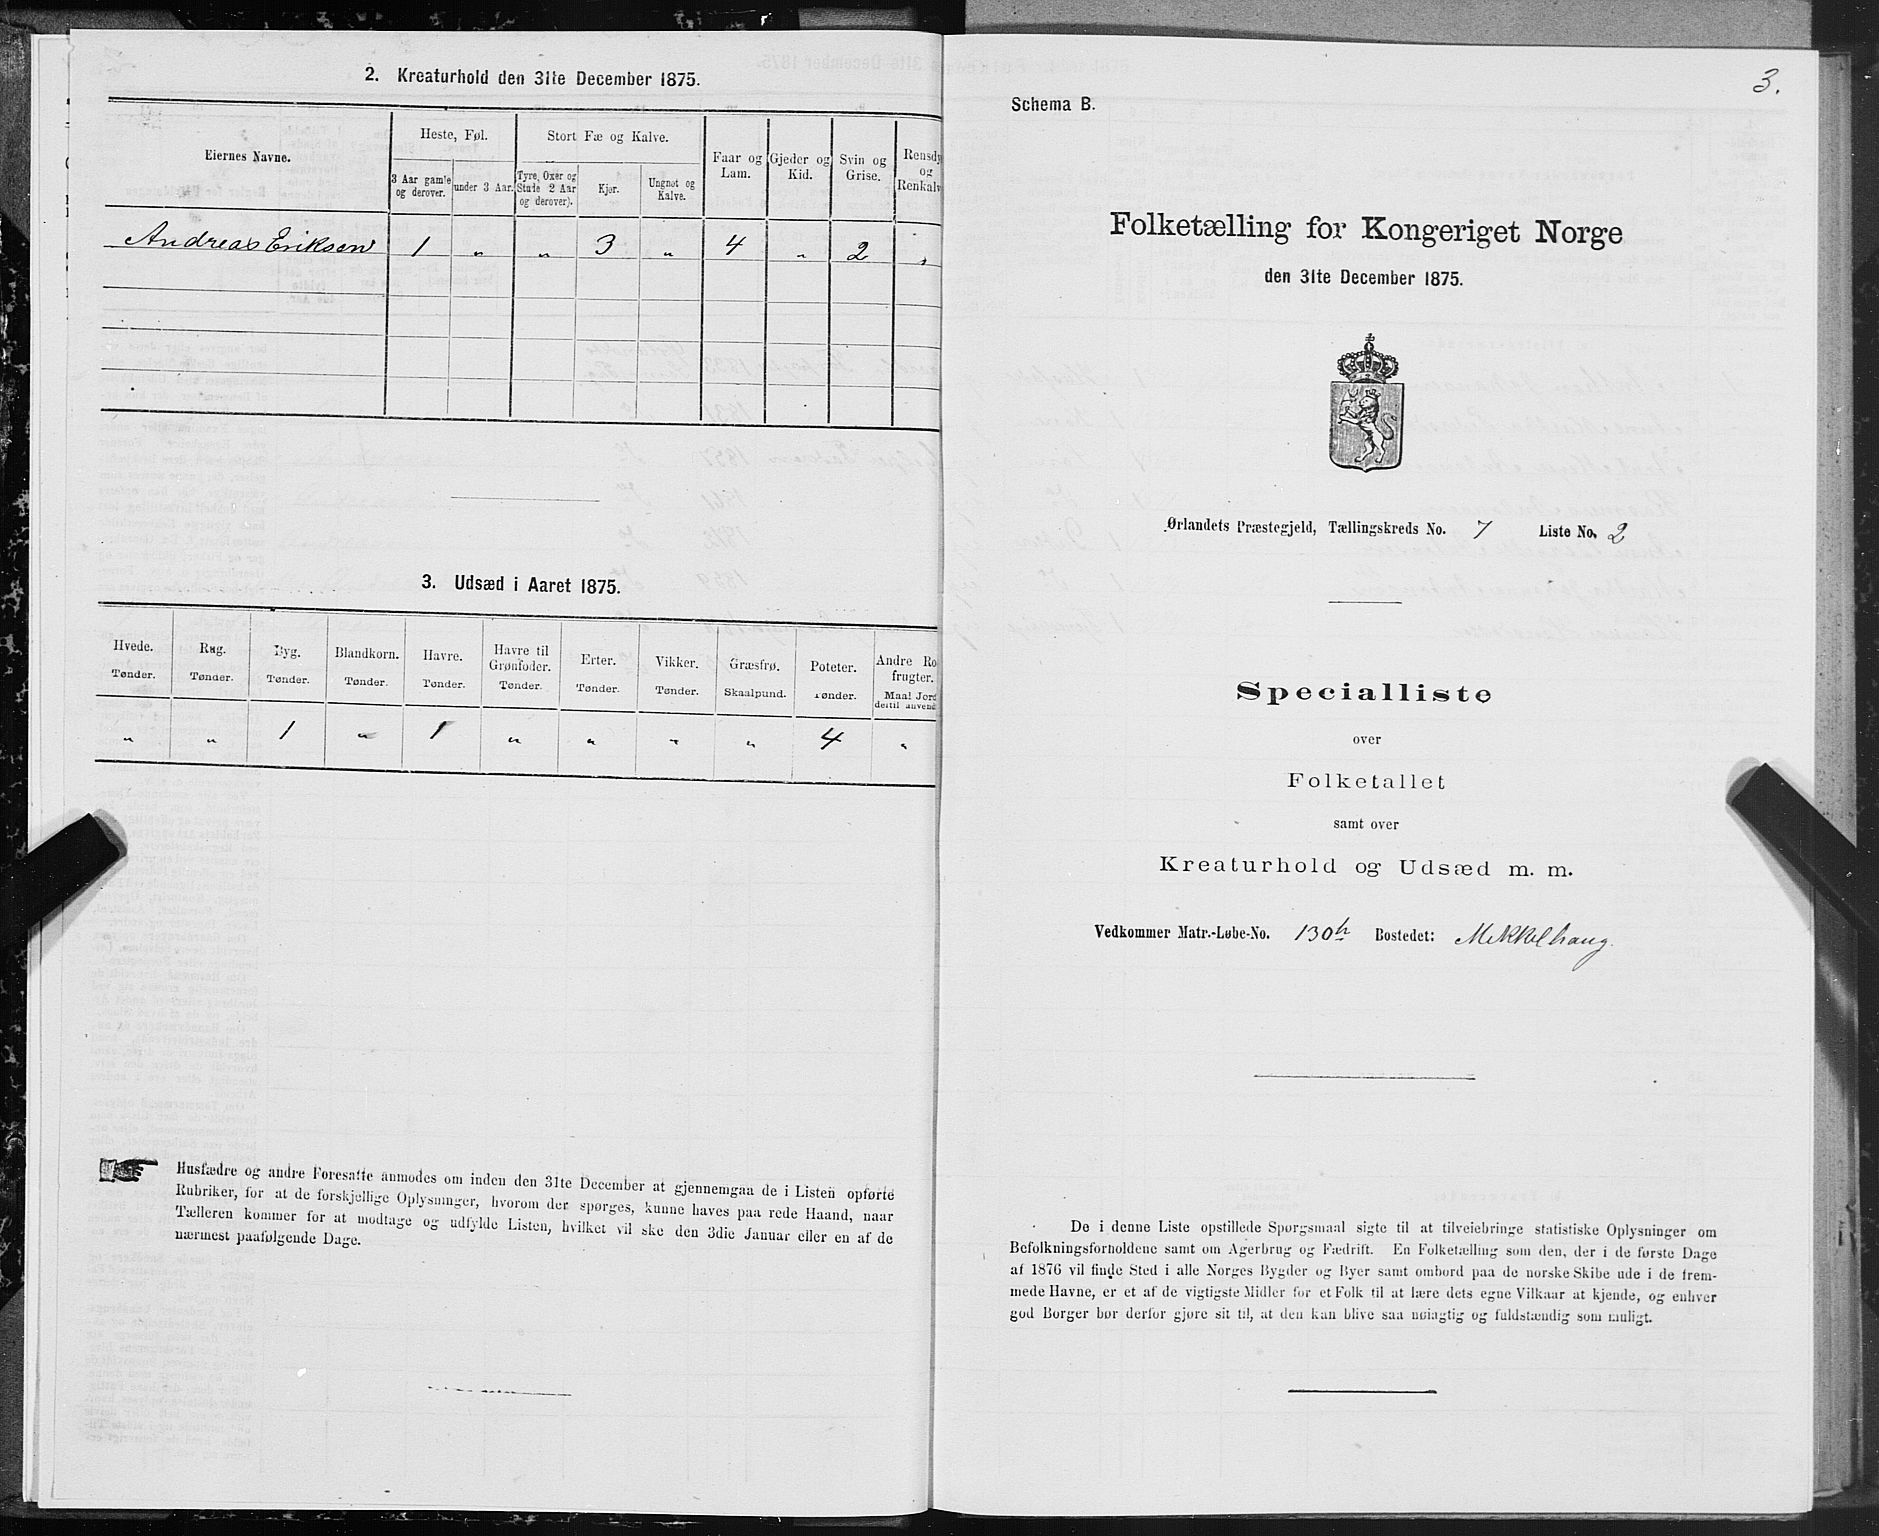 2. Kreaturhold den 31te December 1875.
Eiernes Navne.
Heste, Føl.
Stort Fæ og Kalve.
Faar og Lam.
Gjeder og Kid.
Svin og Grise.
Rensdy
og
Renkalv
3 Aar gamle og derover.
under 3 Aar.
Tyre, Oxer og Stude 2 Aar og derover).
Kjør.
Ungnøt og Kalve.
Andreas Eriksen 1 „ „ 3 „ 4 „ 2 „
3. Udsæd i Aaret 1875.
Hvede. Rug. Byg. Blandkorn. Havre. Havre til Grønfoder. Erter. Vikker. Græsfrø. Poteter. Andre Ro-
frugter.
Tønder. Tønder. Tønder. Tønder. Tønder. Tønder. Tønder. Tønder. Skaalpund. Tønder. Maal Jord
dertil anvend
„ „ 1 „ 1 „ „ „ „ 4 „
Husfædre og andre Foresatte anmodes om inden den 31te December at gjennemgaa de i Listen opførte
Rubriker, for at de forskjellige Oplysninger, hvorom der spørges, kunne haves paa rede Haand, naar
Tælleren kommer for at modtage og udfylde Listen, hvilket vil ske den 3die Januar eller en af de
nærmest paafølgende Dage.
3.
Schema B.
Folketælling for Kongeriget Norge
den 31te December 1875.
Ørlandets Præstegjeld, Tællingskreds No. 7 Liste No. 2
Specialliste
over
Folketallet
samt over
Kreaturhold og Udsæd m. m.
Vedkommer Matr.-Løbe-No. 130h Bostedet: Mekkelhaug.
De i denne Liste opstillede Spørgsmaal sigte til at tilveiebringe statistiske Oplysninger om
Befolkningsforholdene samt om Agerbrug og Fædrift. En Folketælling som den, der i de første Dage
af 1876 vil finde Sted i alle Norges Bygder og Byer samt ombord paa de norske Skibe ude i de frem-
mede Havne, er et af de vigtigste Midler for et Folk til at lære dets egne Vilkaar at kjende, og enhver
god Borger bør derfor gjøre sit til, at den kan blive saa nøiagtig og fuldstændig som muligt.